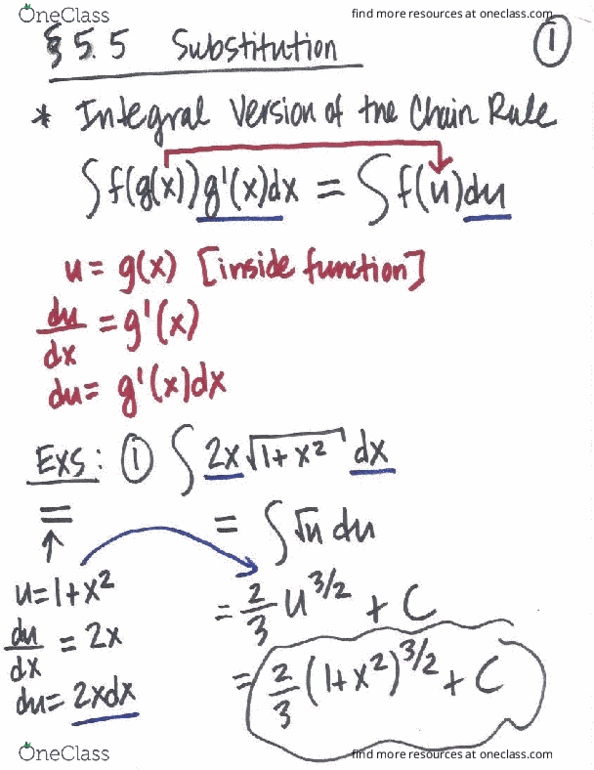 OneClass find more resources at oneclass.com
§ 5.5 Substitution ①
* Integral Version of the Chain Rule
∫f(g(x))g'(x)dx = ∫f(u)du
u = g(x) [inside function]
du/dx = g'(x)
du = g'(x)dx
Exs: ① ∫ 2x√(1+x²) dx
= = ∫√u du
u=1+x² = 2/3 u^3/2 + C
du/dx = 2x = 2/3 (1+x²)^3/2 + C
du = 2xdx
OneClass find more resources at oneclass.com